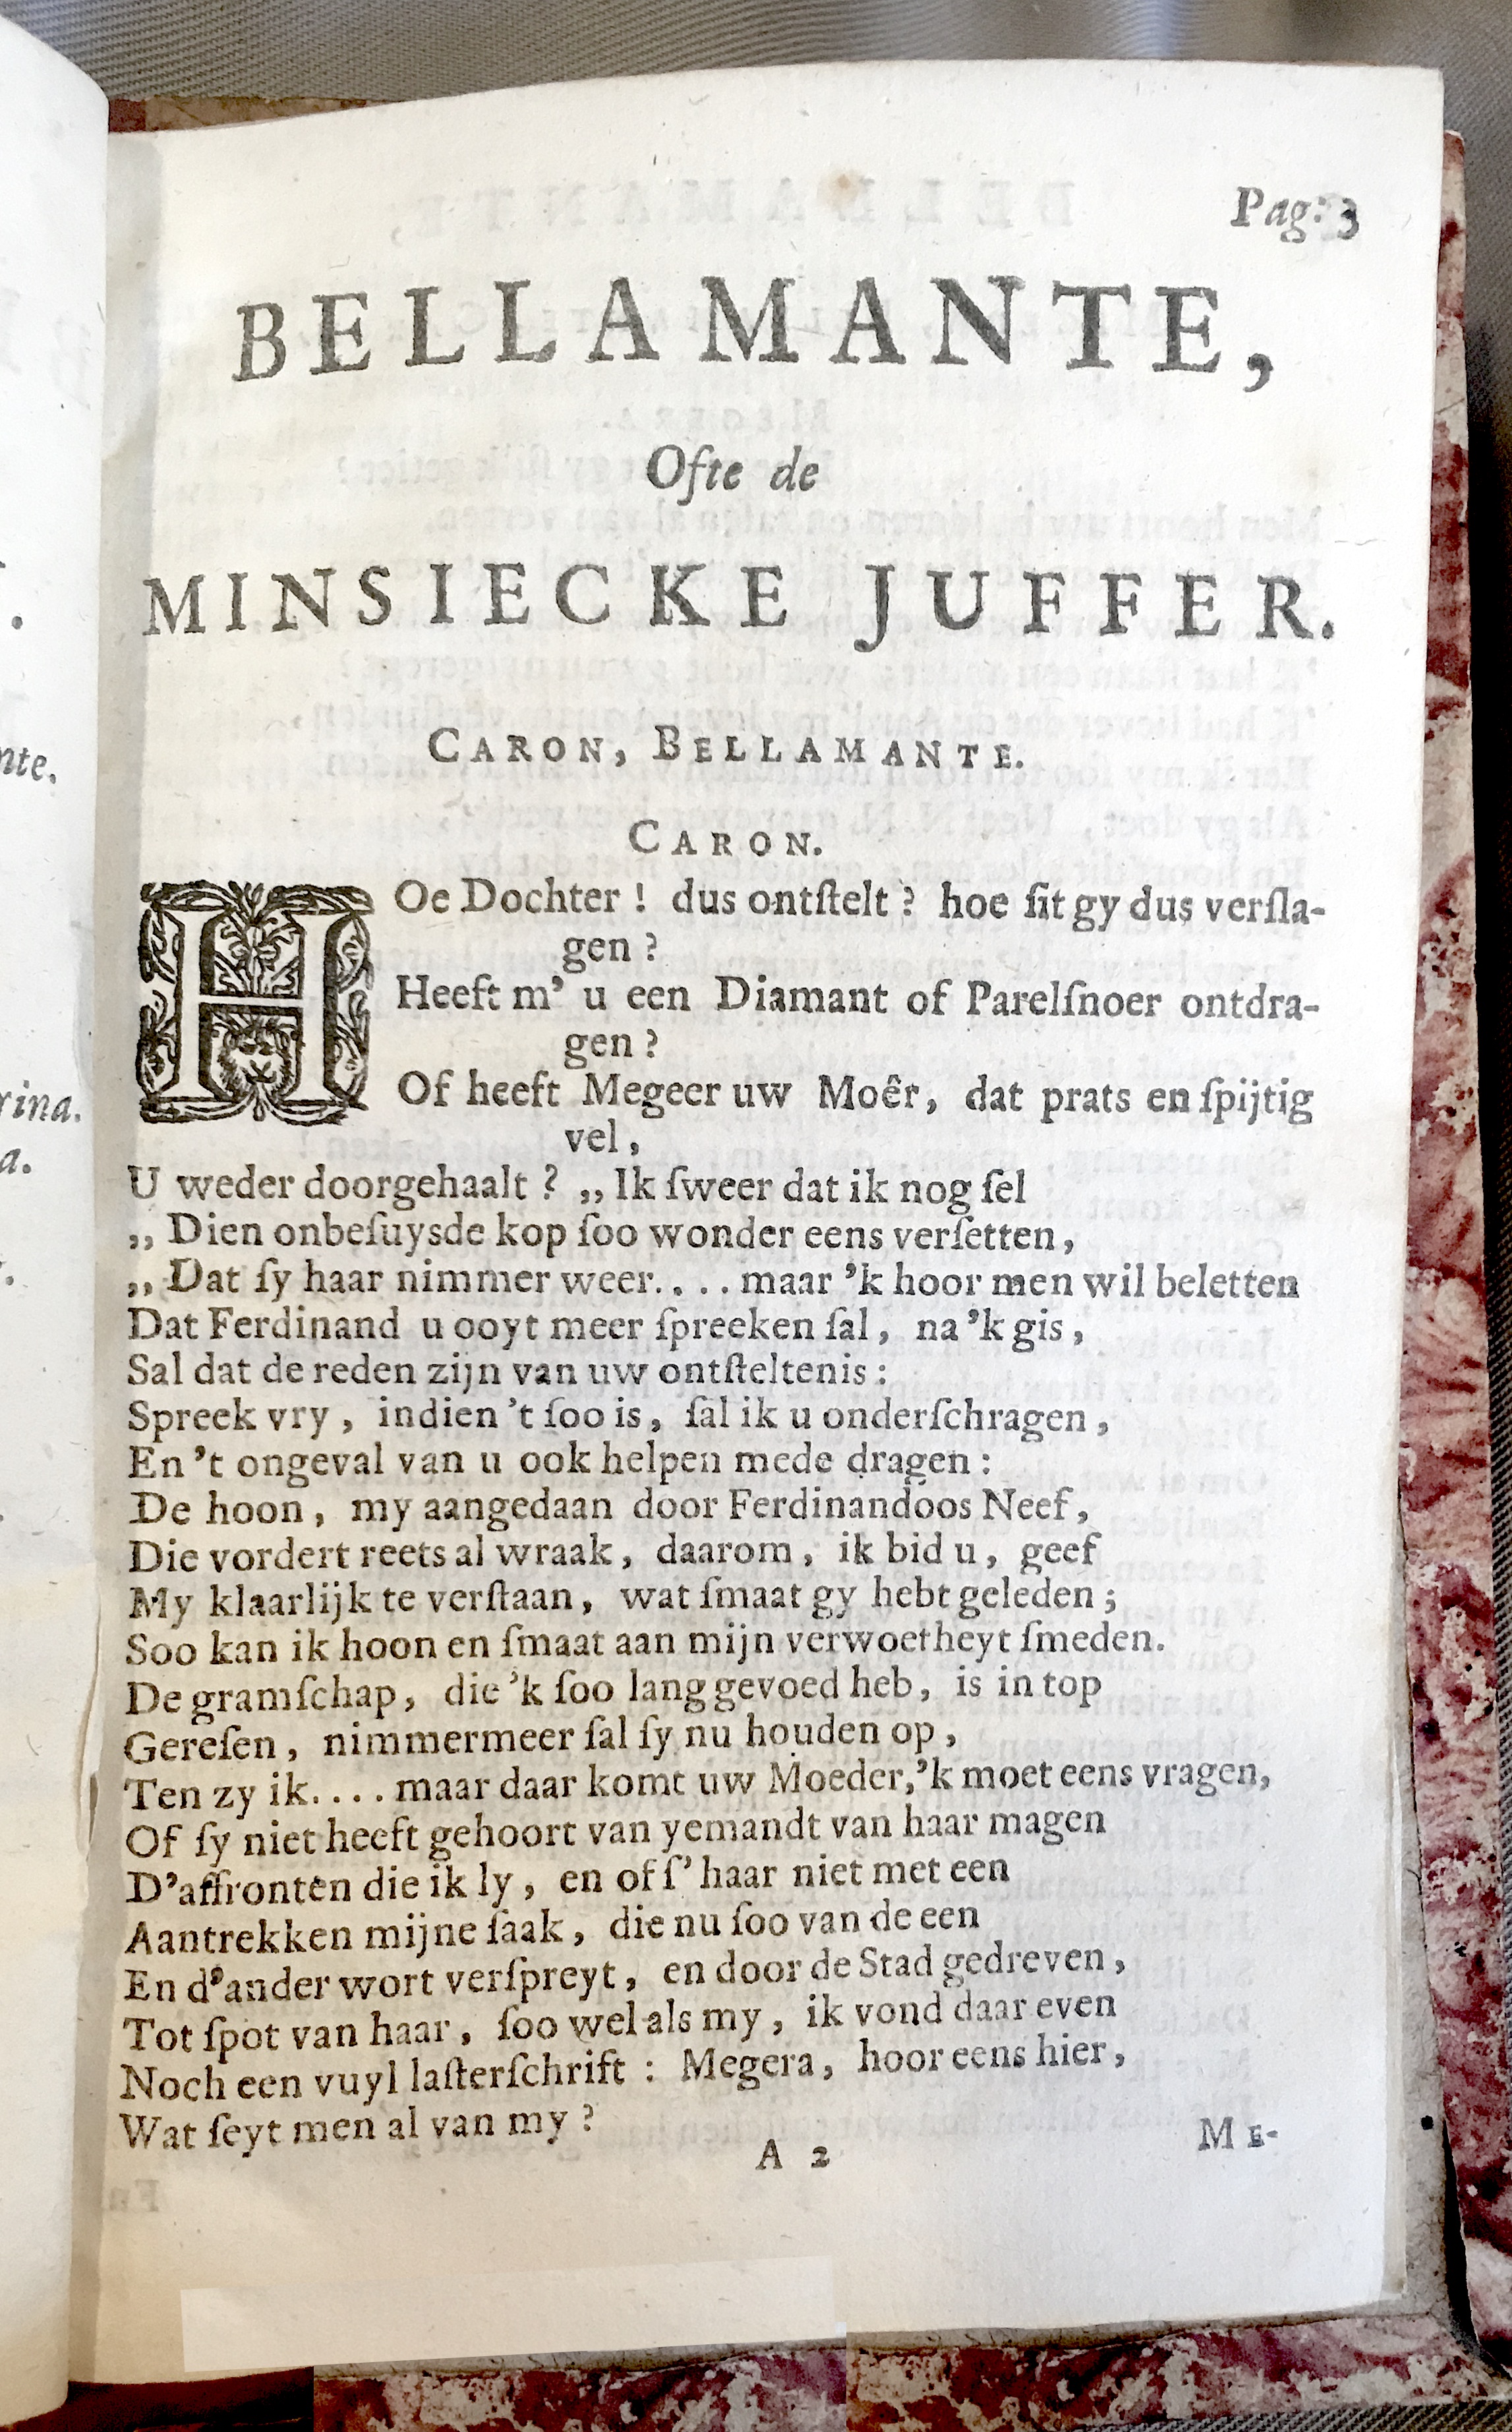 Pag: 3
BELLAMANTE,
Ofte de
MINSIECKE JUFFER.
CARON, BELLAMANTE.
CARON.
HOe Dochter ! dus ontſtelt ? hoe ſit gy dus verſla-
gen ?
Heeft m' u een Diamant of Parelſnoer ontdra-
gen ?
Of heeft Megeer uw Moêr, dat prats en ſpijtig
vel,
U weder doorgehaalt ? ,, Ik ſweer dat ik nog ſel
,, Dien onbeſuysde kop ſoo wonder eens verſetten,
,, Dat ſy haar nimmer weer.... maar 'k hoor men wil beletten
Dat Ferdinand u ooyt meer ſpreeken ſal, na 'k gis,
Sal dat de reden zijn van uw ontſteltenis:
Spreek vry, indien 't ſoo is, ſal ik u onderſchragen,
En 't ongeval van u ook helpen mede dragen:
De hoon, my aangedaan door Ferdinandoos Neef,
Die vordert reets al wraak, daarom, ik bid u, geef
My klaarlijk te verſtaan, wat ſmaat gy hebt geleden;
Soo kan ik hoon en ſmaat aan mijn verwoetheyt ſmeden.
De gramſchap, die 'k ſoo lang gevoed heb, is in top
Gereſen, nimmermeer ſal ſy nu houden op,
Ten zy ik.... maar daar komt uw Moeder, 'k moet eens vragen,
Of ſy niet heeft gehoort van yemandt van haar magen
D'affronten die ik ly, en of ſ' haar niet met een
Aantrekken mijne ſaak, die nu ſoo van de een
En d'ander wort verſpreyt, en door de Stad gedreven,
Tot ſpot van haar, ſoo wel als my, ik vond daar even
Noch een vuyl laſterſchrift : Megera, hoor eens hier,
Wat ſeyt men al van my ?
A 2
ME-
nte.
rina.
a.